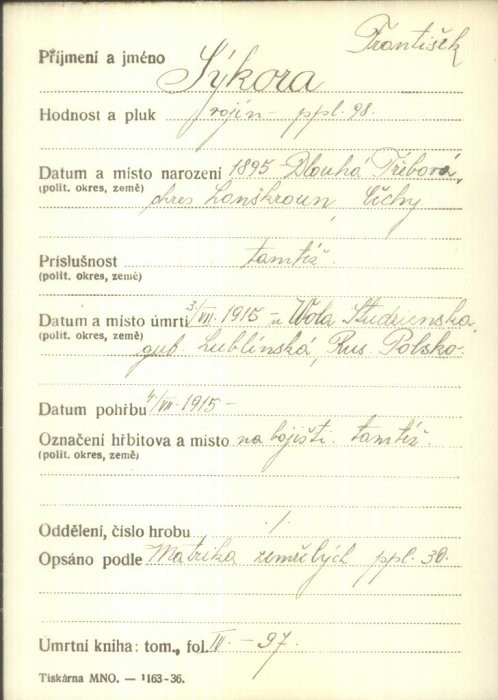 František
Příjmení a jméno Sýkora
Hodnost a pluk vojín – ppl. 98.
Datum a místo narození 1895 Dlouhá Třebová,
(polit. okres, země) okres Lanškroun, Čechy
Príslušnost tamtéž.
(polit. okres, země)
Datum a místo úmrtí 3/VII. 1915 – u Wola Studzunska,
(polit. okres, země) gub. Lublínská, Rus. Polsko.
Datum pohřbu 4/VII. 1915 –
Označení hřbitova a místo na bojišti. tamtéž.
(polit. okres, země)
Oddělení, číslo hrobu ./.
Opsáno podle Matrika zemřelých ppl. 30.
Úmrtní kniha: tom., fol. IV. – 97.
Tiskárna MNO. — 1163-36.